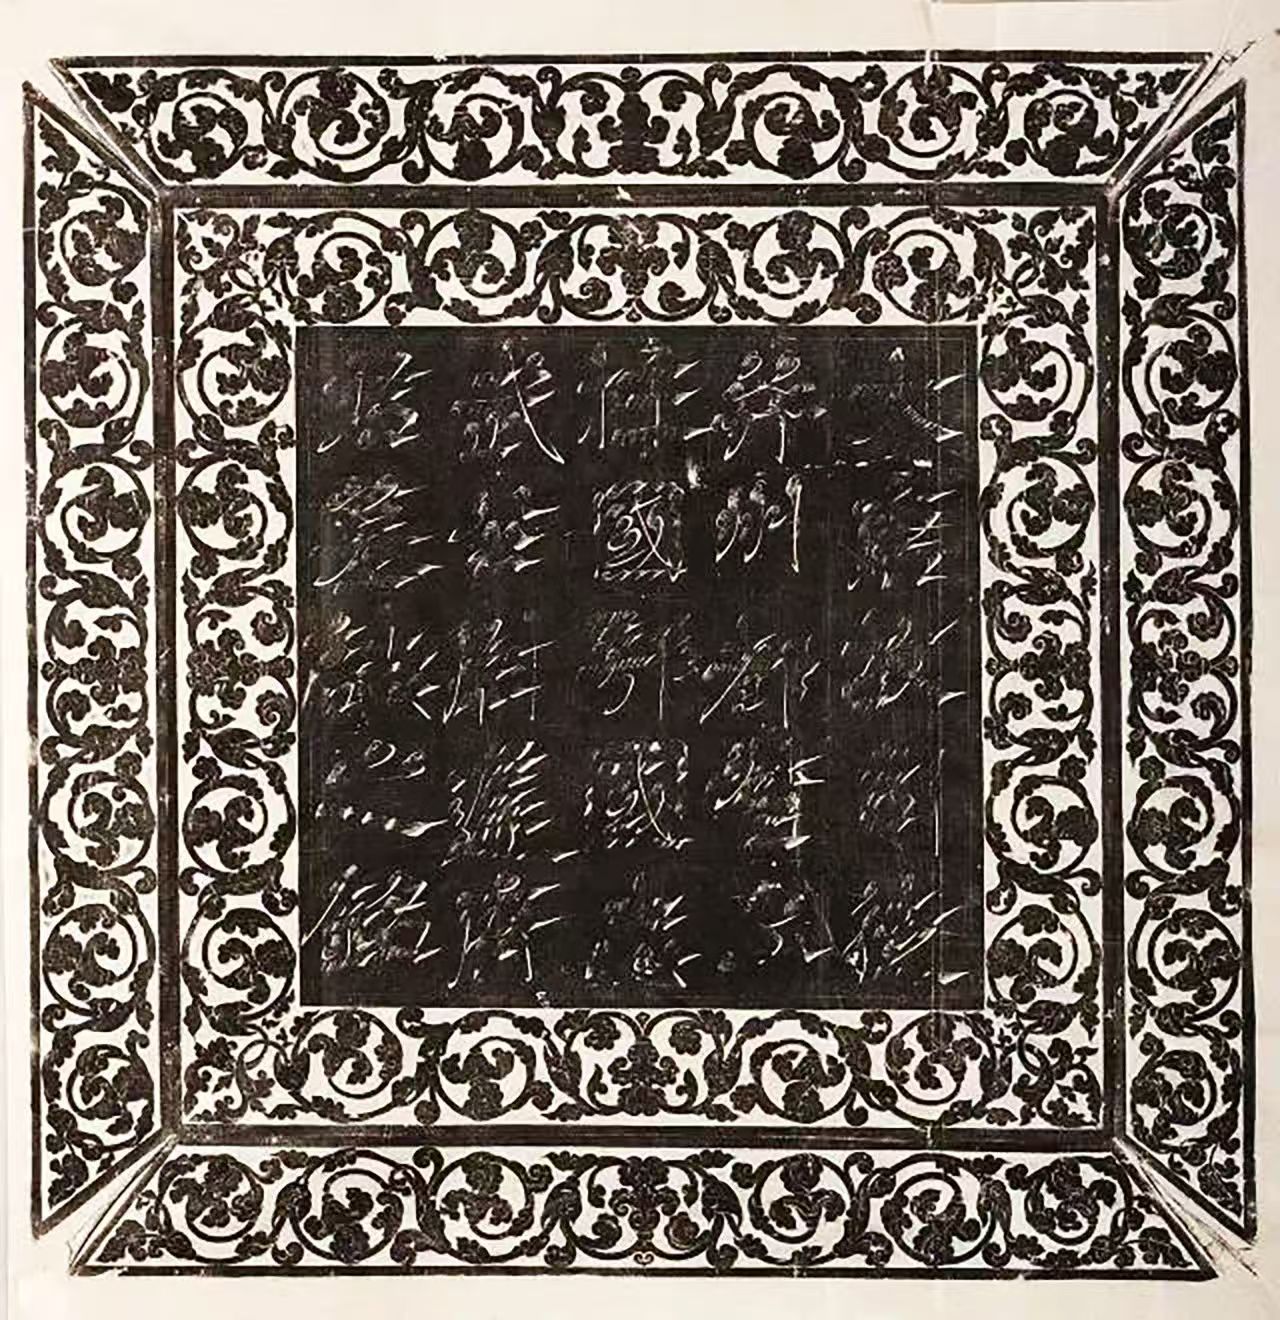 大唐故司徒
并州都督上
柱國鄂國忠
武公尉遲府
君墓誌之銘